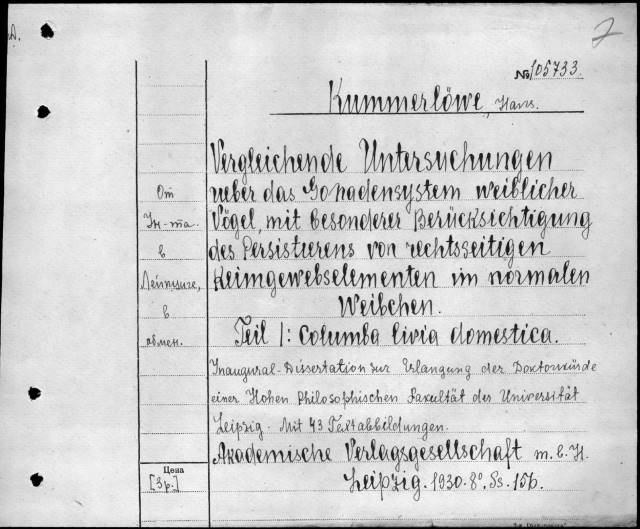 A.
2
№ 105733.
Kummerlöwe, Hans.
Vergleichende Untersuchungen
ueber das Gonadensystem weiblicher
Vögel, mit besonderer Berücksichtigung
des Persisturens von rechtsseitigen
Keimgewebselementen im normalen
Weibchen.
Teil I: Columba livia domestica.
Inaugural-Dissertation zur Erlangung der Doktorwürde
einer Hohen Philosophischen Fakultät der Universität
Leipzig. Mit 43 Textabbildungen.
Akademische Verlagsgesellschaft m.b.H.
Leipzig. 1930. 8º. Ss. 156.
От
Ин-та.
в
Лейпциге,
в
обмен.
Цена
[3р.]